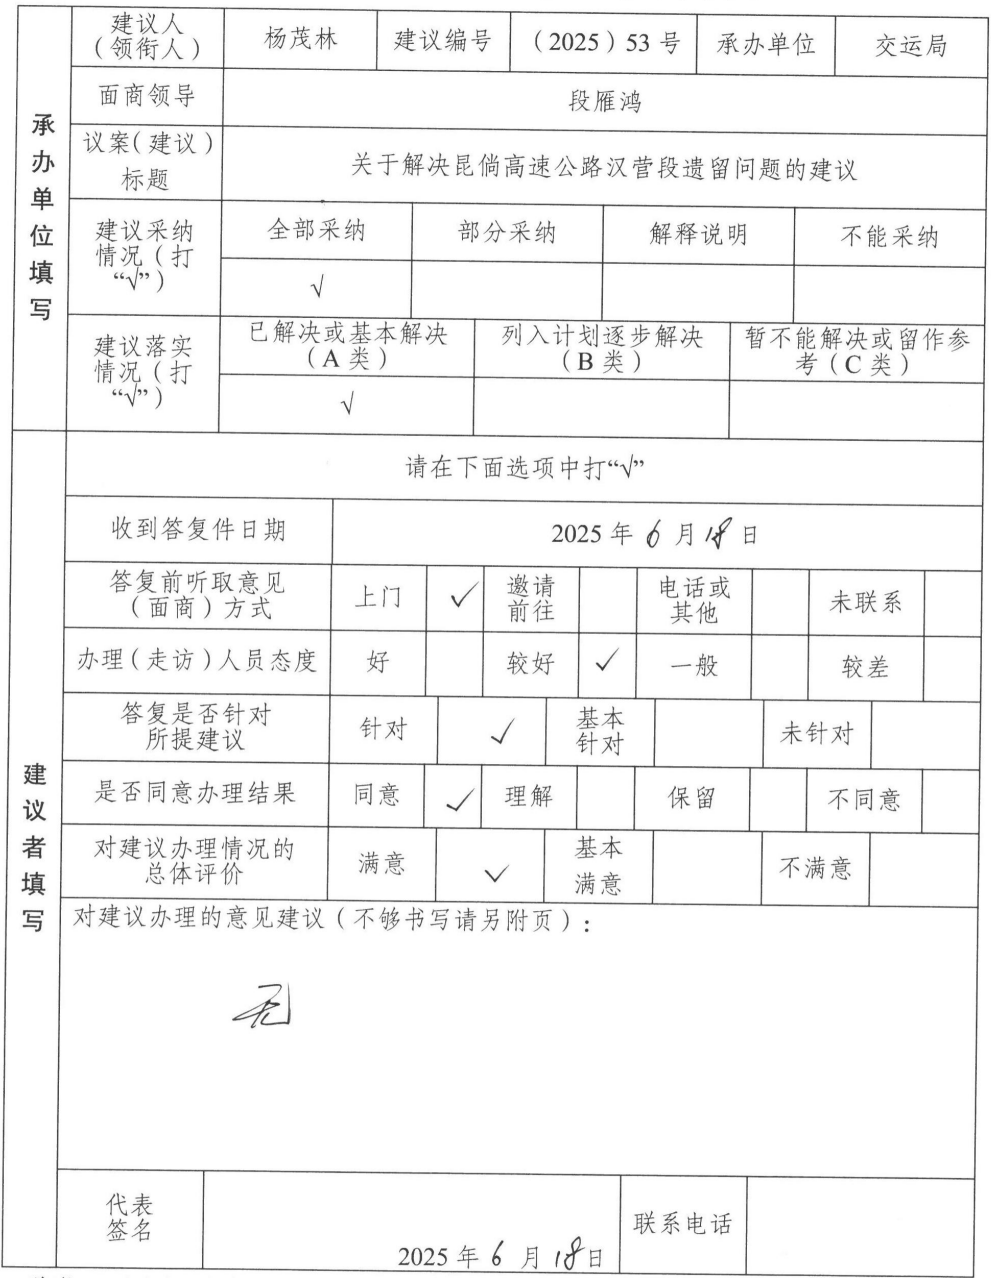 承办单位填写
建议人
（领衔人）
杨茂林
建议编号
（2025）53号
承办单位
交运局
面商领导
段雁鸿
议案（建议）
标题
关于解决昆倘高速公路汉营段遗留问题的建议
建议采纳
情况（打
“√”）
全部采纳
部分采纳
解释说明
不能采纳
√
建议落实
情况（打
“√”）
已解决或基本解决
（A类）
列入计划逐步解决
（B类）
暂不能解决或留作参
考（C类）
√
建议者填写
请在下面选项中打“√”
收到答复件日期
2025年6月18日
答复前听取意见
（面商）方式
上门
✓
邀请
前往
电话或
其他
未联系
办理（走访）人员态度
好
较好
✓
一般
较差
答复是否针对
所提建议
针对
✓
基本
针对
未针对
是否同意办理结果
同意
✓
理解
保留
不同意
对建议办理情况的
总体评价
满意
✓
基本
满意
不满意
对建议办理的意见建议（不够书写请另附页）：
无
代表
签名
2025年6月18日
联系电话